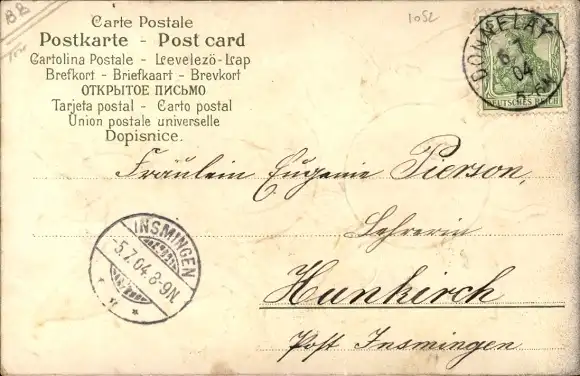 BB
1052
Carte Postale
Postkarte - Post card
Cartolina Postale - Levelezö-Lap
Brefkort - Briefkaart - Brevkort
ОТКРЫТОЕ ПИСЬМО
Tarjeta postal - Carto postal
Union postale universelle
Dopisnice.
DONNELAY
04
5-6N
DEUTSCHES REICH
Fräulein Eugenie Pierson,
Lehrerin
Hunkirch
Post Insmingen
INSMINGEN
-5.7.04.8-9N